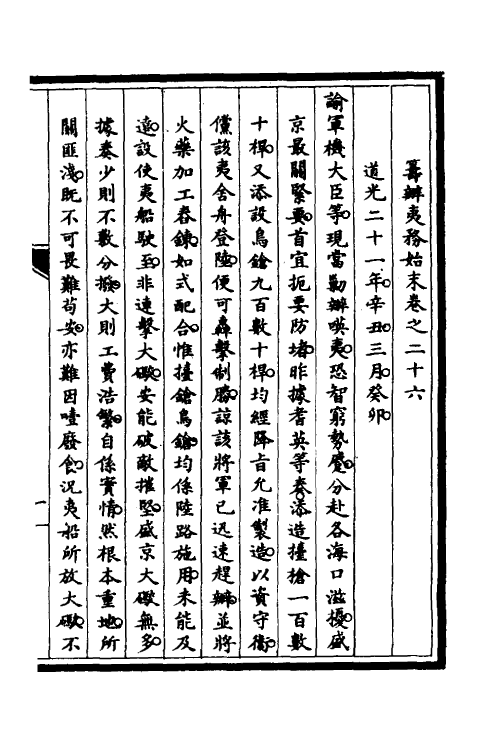 籌辦夷務始末卷之二十六
道光二十一年辛丑三月癸卯
諭軍機大臣等現當勦辦暎夷恐智窮勢蹙分赴各海口滋擾盛
京最關緊要首宜扼要防堵昨據耆英等奏添造擡槍一百數
十桿又添設鳥鎗九百數十桿均經降旨允准製造以資守衞
儻該夷舍舟登陸便可轟擊制勝諒該將軍已迅速趕辦並將
火藥加工舂鍊如式配合惟擡鎗鳥鎗均係陸路施用未能及
遠設使夷船駛至非連擊大礮安能破敵摧堅盛京大礮無多
據奏少則不敷分撥大則工費浩繁自係實情然根本重地所
關匪淺既不可畏難苟安亦難因噎廢食況夷船所放大礮不
一